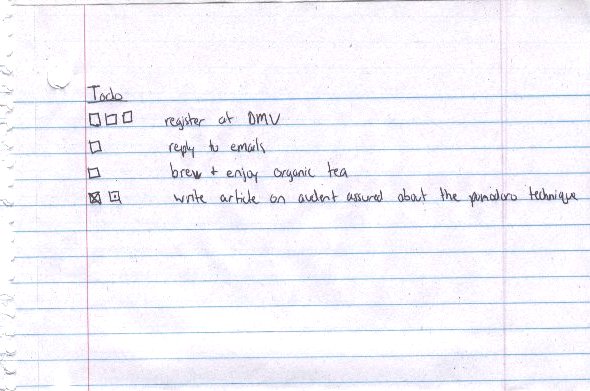 Todo
☐☐☐ register at DMV
☐ reply to emails
☐ brew + enjoy organic tea
☒ ⊡ write article on audent assured about the pomodoro technique